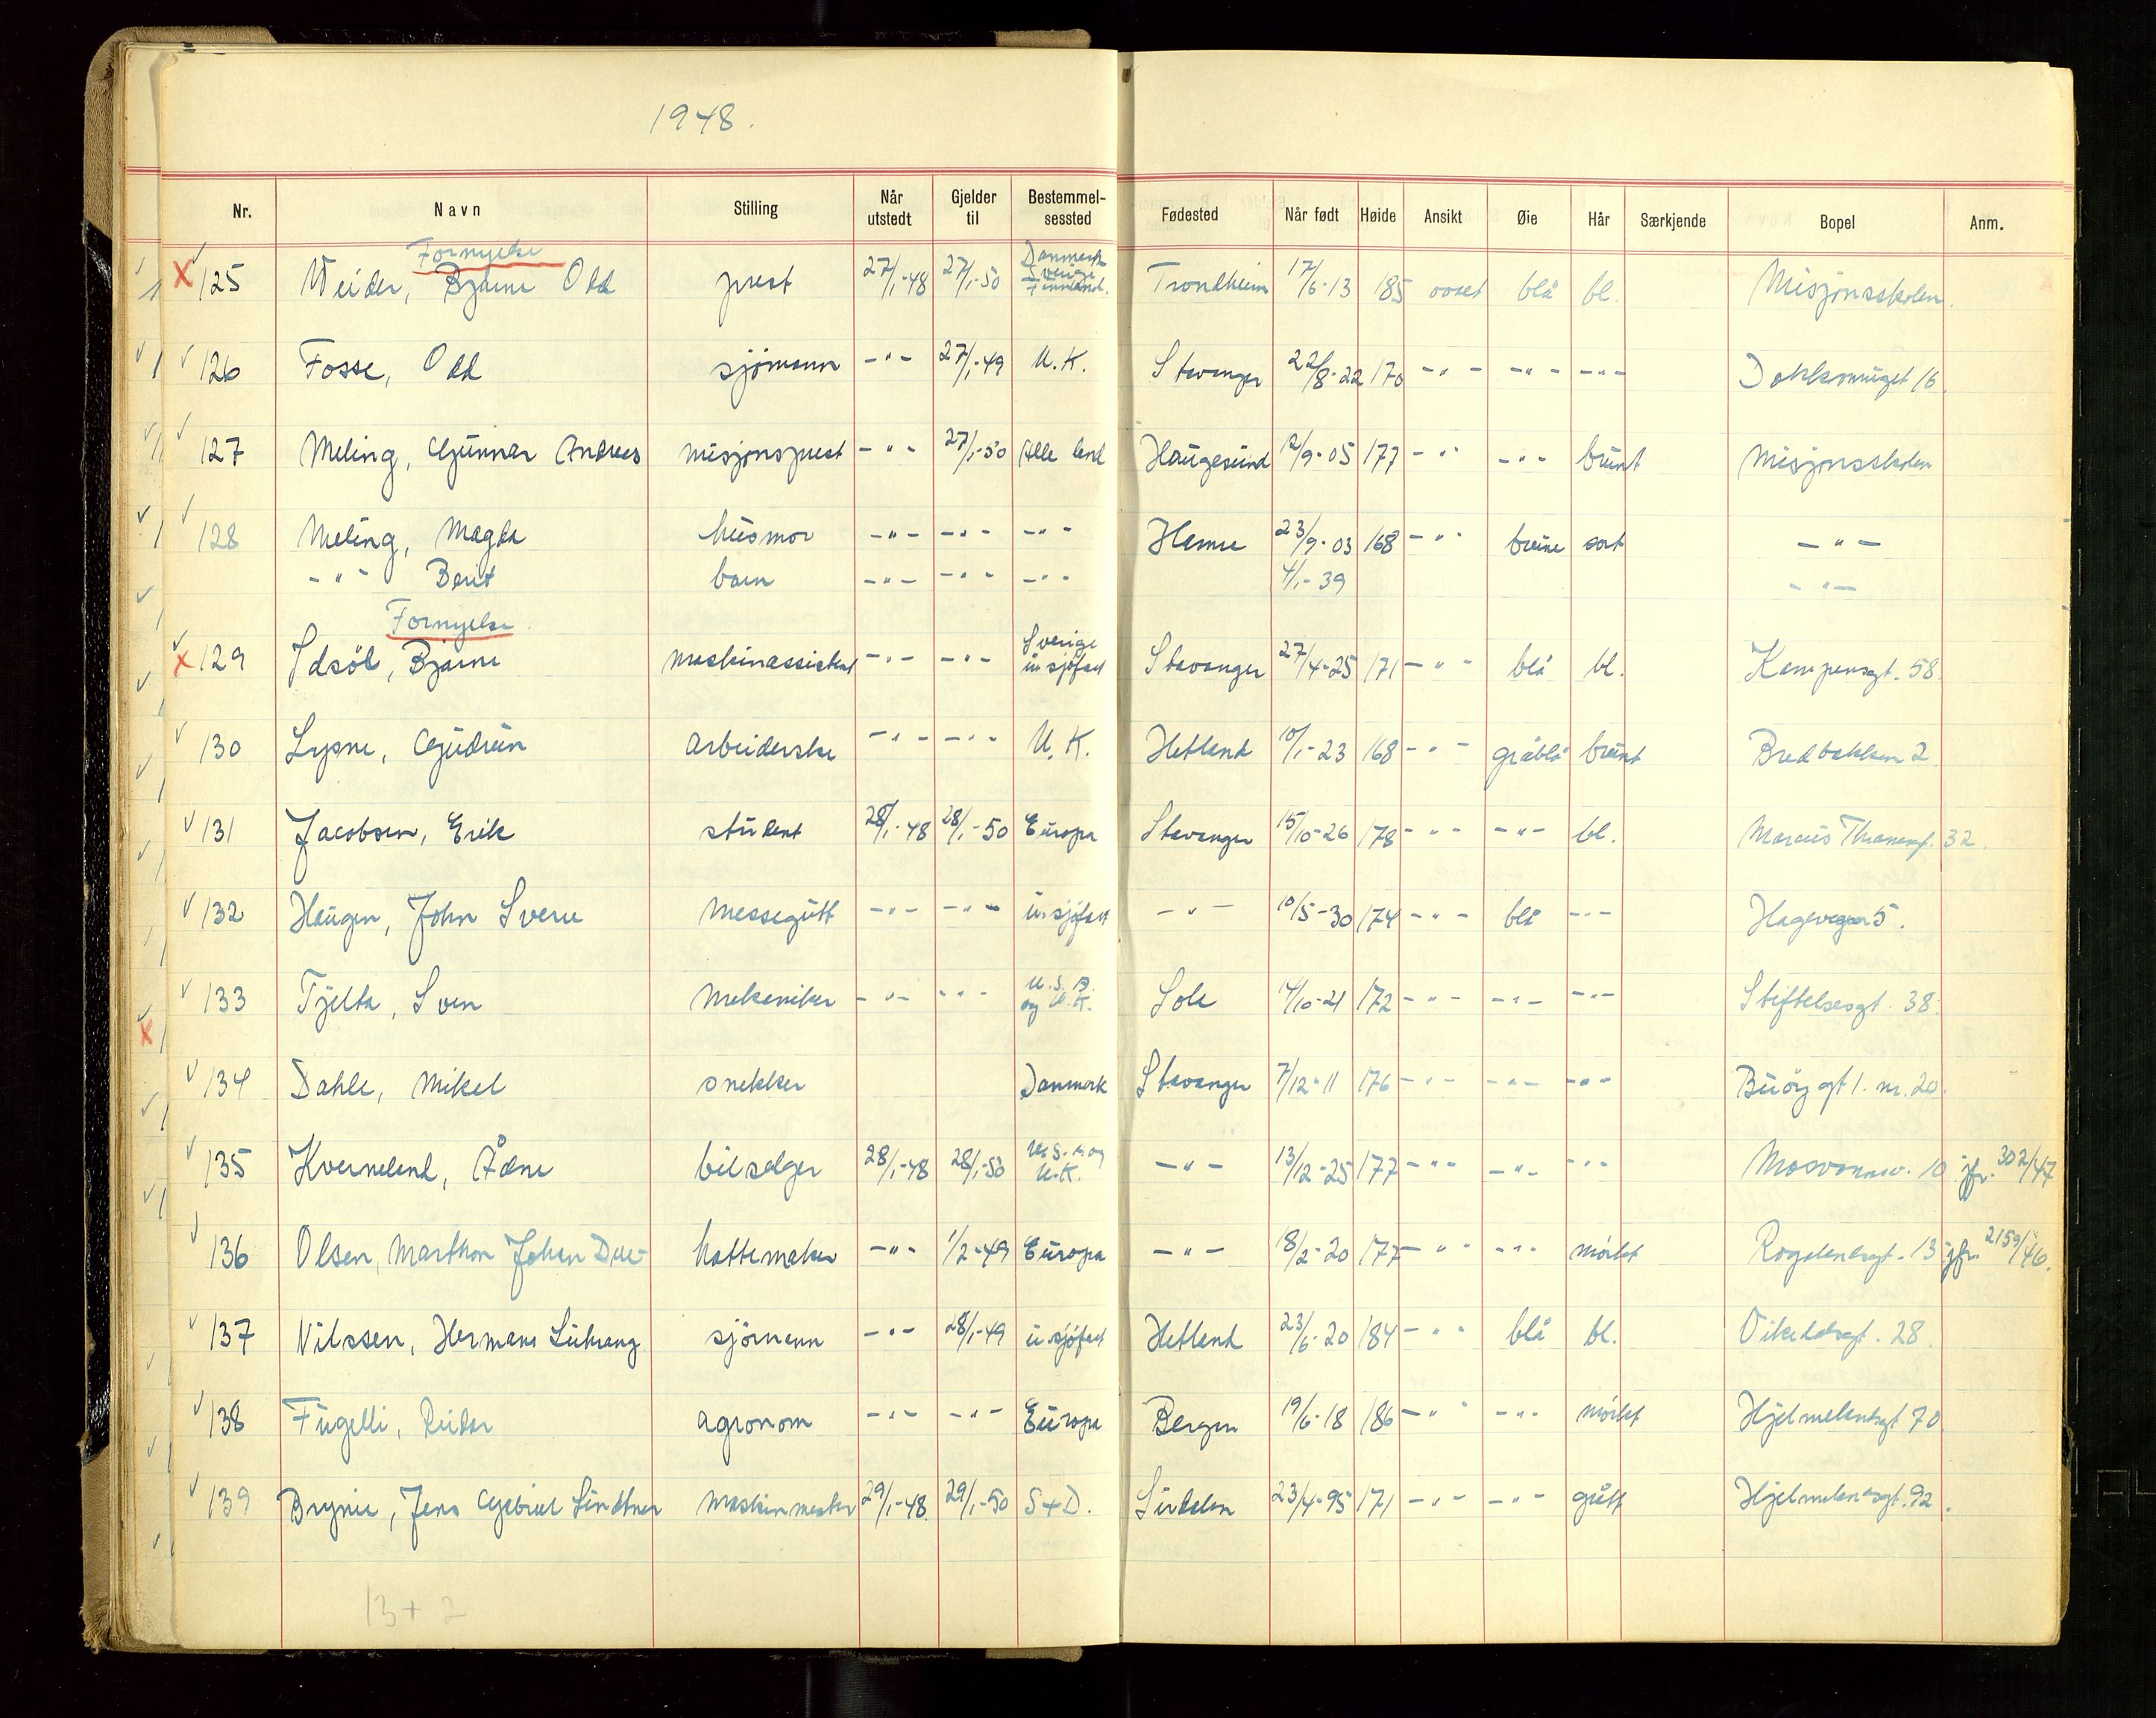 1948.
Nr. Navn Stilling Når utstedt Gjelder til Bestemmelsessted Fødested Når født Høide Ansikt Øie Hår Særkjende Bopel Anm.
Fornyelse
X 125 Weider, Bjarne Odd prest 27/1-48 27/1-50 Danmark Sverige Finnland. Trondheim 17/6-13 185 ovalt blå bl. Misjonsskolen.
126 Fosse, Odd sjømann -"- 27/1-49 U.K. Stavanger 22/8-22 170 -"- -"- -"- 16.
127 Meling, Gunnar Andreas misjonsprest -"- 27/1-50 Alle land Haugesund 12/9-05 177 -"- -"- brunt Misjonsskolen
128 Meling, Magda husmor -"- -"- -"- Hamre 23/9-03 168 -"- brune sort -"-
-"- Berit barn -"- -"- -"- 4/1-39 -"-
Fornyelse.
X 129 Idsöl, Bjarne maskinassistent -"- -"- Sverige u.sjöfart Stavanger 27/4-25 171 -"- blå bl. Kampensgt. 58.
130 Lysne, Gudrun arbeiderske -"- -"- U.K. Hetland 10/1-23 168 -"- gråblå brunt Bredbakken 2
131 Jacobsen, Erik student 28/1-48 28/1-50 Europa Stavanger 15/10-26 178 -"- -"- bl. Marcus Thranesgt. 32.
132 Haugen, John Sverre messegutt -"- -"- u.sjöfart -"- 10/5-30 174 -"- blå -"- Hagevegen 5.
133 Tjelta, Sven mekaniker -"- -"- U.S.A. og U.K. Sola 4/10-21 172 -"- -"- -"- Stiftelsesgt. 38.
134 Dahle, Mikel snekker Danmark Stavanger 7/12-11 176 -"- -"- -"- Buöy gt 1. nr. 20.
135 Kverneland, Ådne bilselger 28/1-48 28/1-50 U.S.A og U.K. -"- 13/12-25 177 -"- -"- -"- Mosvannsv. 10 jfr. 302/47
136 Olsen, Marthon Johan Due- hattemaker -"- 1/2-49 Europa -"- 18/2-20 177 -"- -"- mörkt Rogalandsgt. 13 jfr. 2159/46.
137 Nilssen, Hermans sjömann -"- 28/1-49 u.sjöfart Hetland 23/6-20 184 -"- blå bl. 28.
138 Fugelli, Reidar agronom -"- -"- Europa Bergen 19/6-18 186 -"- -"- mörkt Hjelmelandsgt 70.
139 Bryne, Jens Gabriel Lindtner maskinmester 29/1-48. 29/1-50 S+D. Sirdalen 23/4-95 171 -"- -"- grått Hjelmelandsgt. 92.
13+2